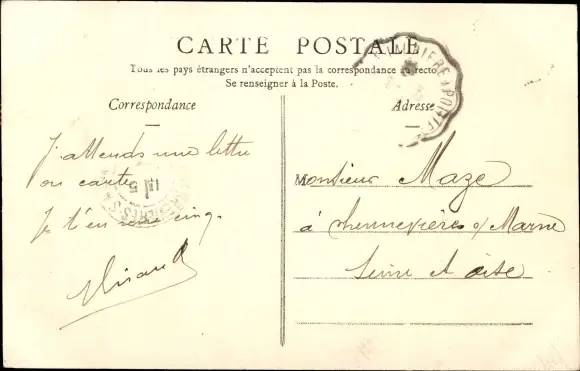 CARTE POSTALE
Tous les pays étrangers n'acceptent pas la correspondance au recto.
Se renseigner à la Poste.
Correspondance
J'attends une lettre
ou carte
Je t'en
Adresse
Monsieur Maze
à chennevières s/ Marne
Seine et oise